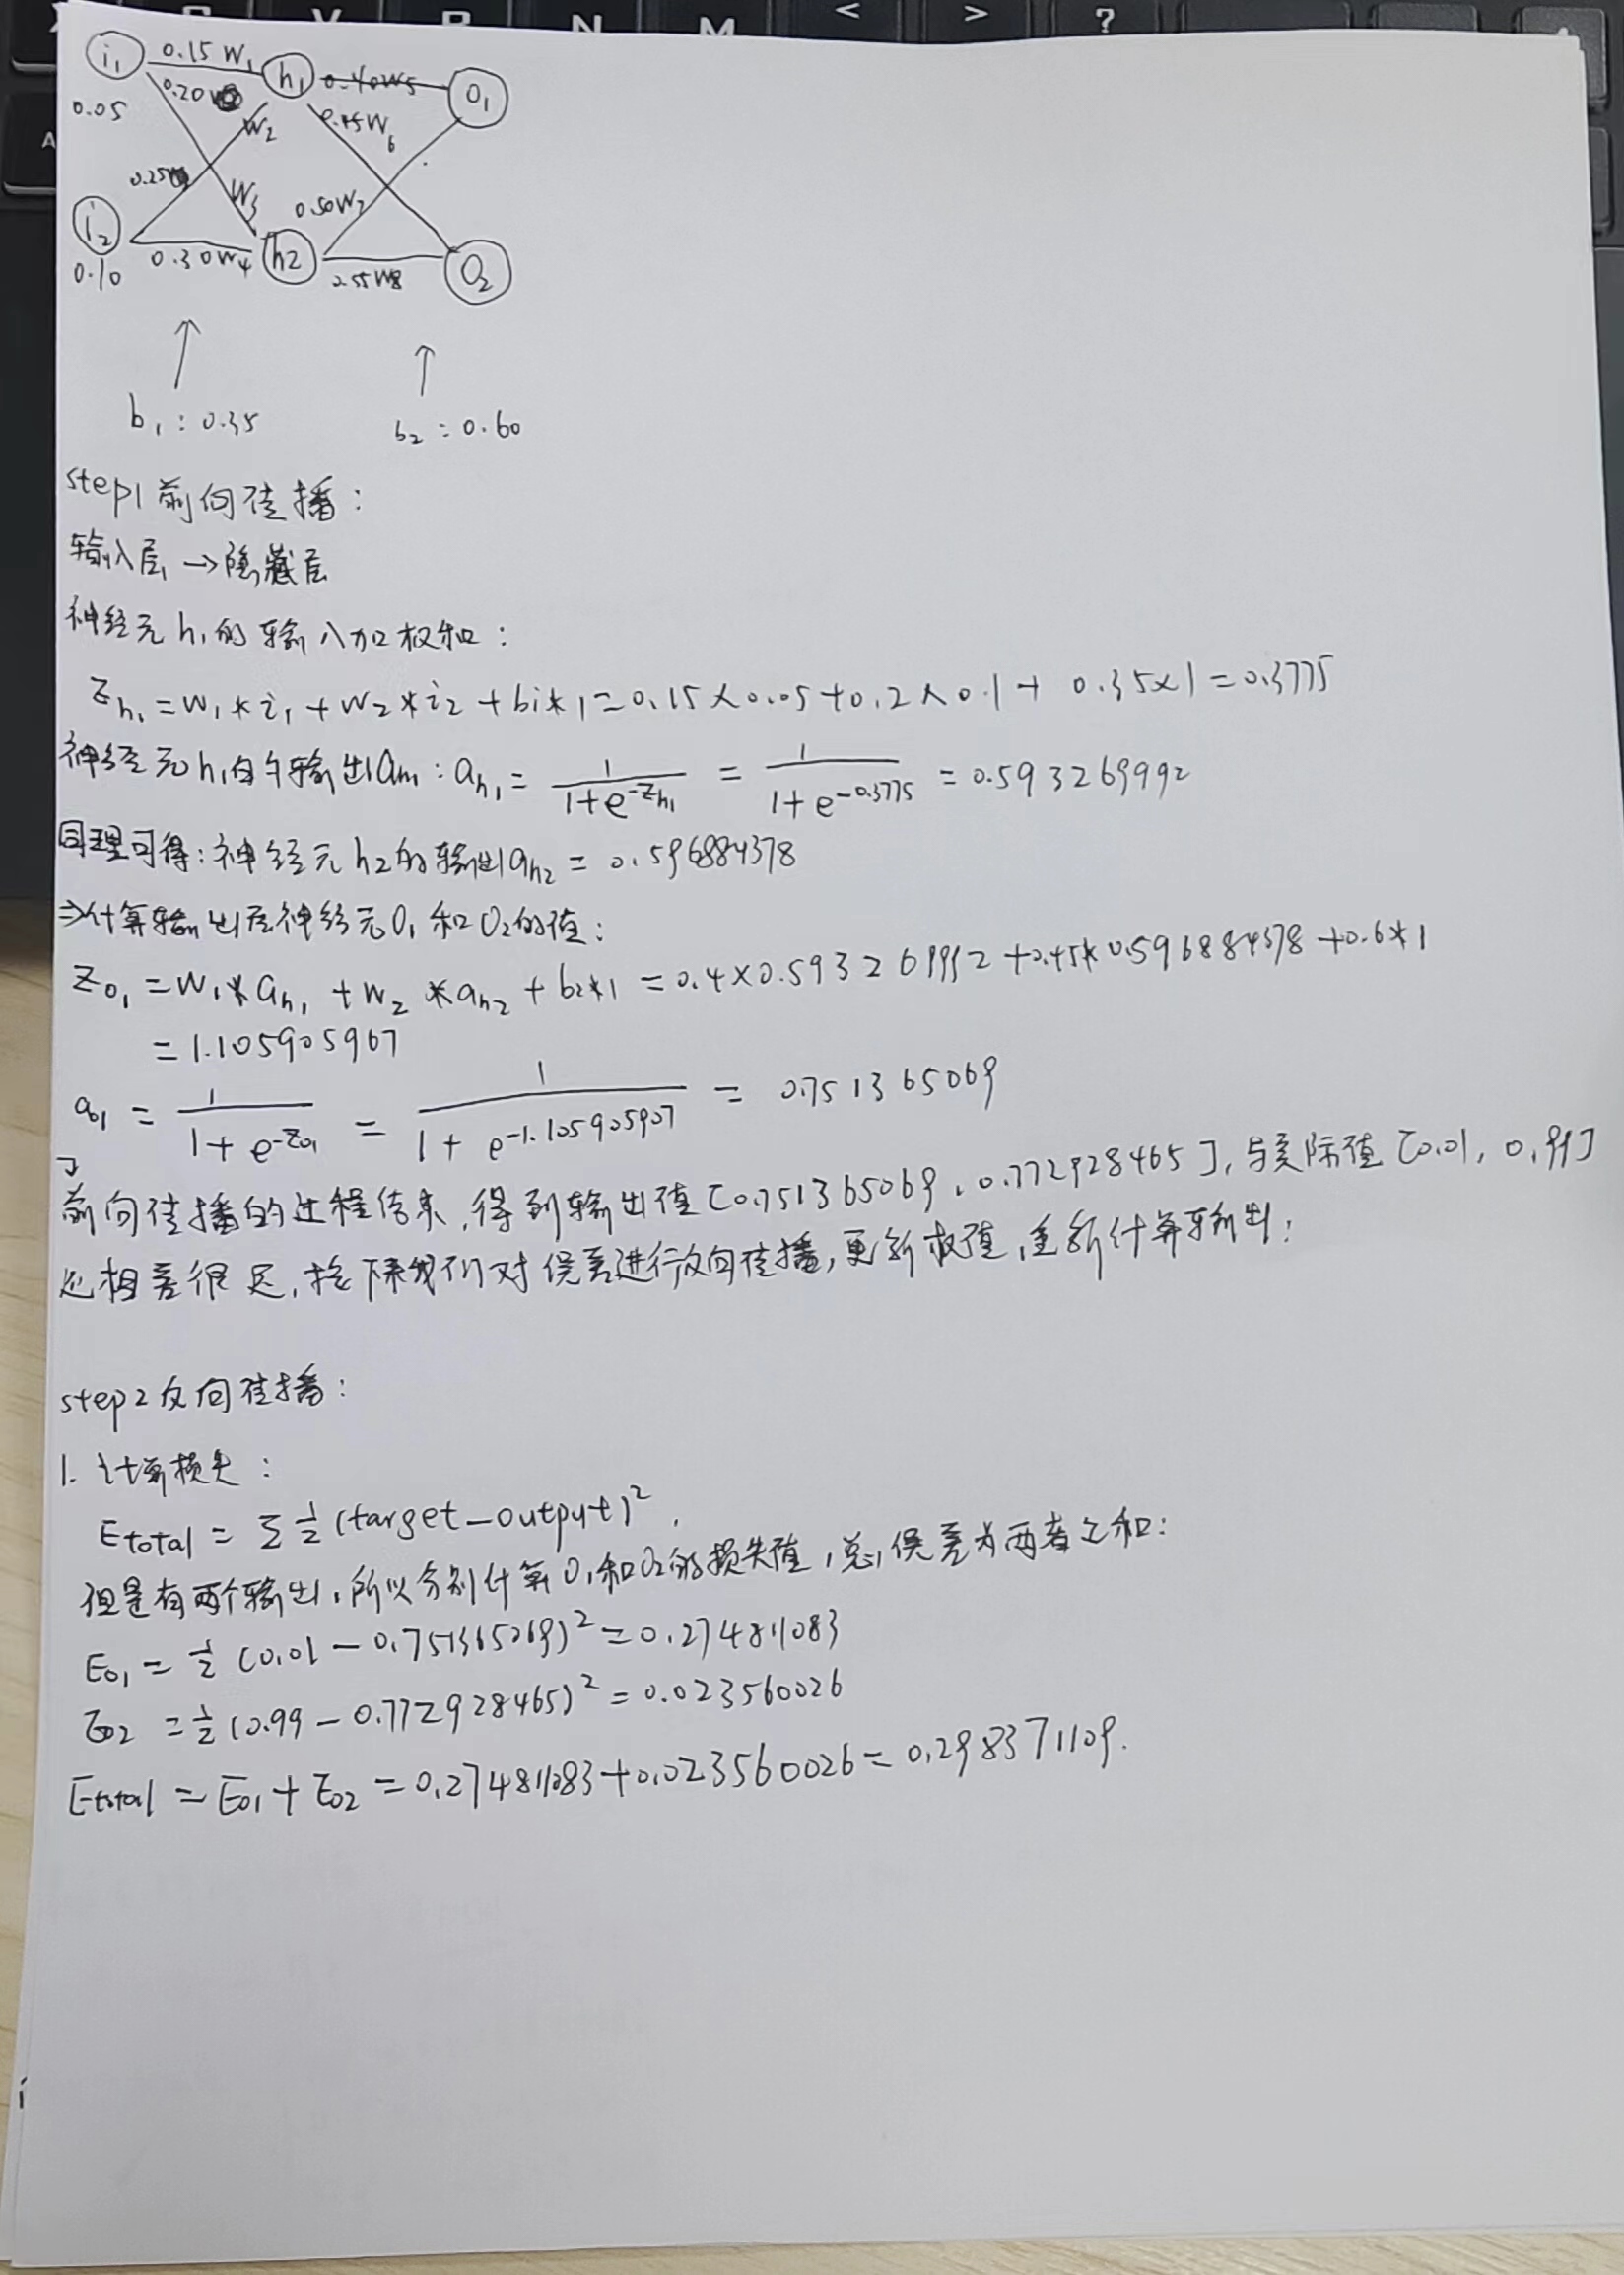 V N M < > ?
i₁ 0.15 W₁ h₁ 0.40W5 O₁
0.05 0.20 W₂ 0.45W₆
0.25 W₃ 0.50W₇
i₂ 0.30W₄ h2 0.55W8 O₂
0.10
b₁:0.35 b₂=0.60
step1前向传播:
输入层→隐藏层
神经元h₁的输入加权和:
Zh₁=W₁*i₁+W₂*i₂+bi*1=0.15×0.05+0.2×0.1+0.35×1=0.3775
神经元h₁的输出ah₁:ah₁=1/(1+e^-Zh₁)=1/(1+e^-0.3775)=0.593269992
同理可得:神经元h2的输出ah2=0.596884378
⇒计算输出层神经元O₁和O₂的值:
Zo₁=W₁*ah₁+W₂*ah₂+b₂*1=0.4×0.593269992+0.45*0.596884378+0.6*1
=1.105905967
ao1=1/(1+e^-Zo1)=1/(1+e^-1.105905907)=0.751365069
前向传播的过程结束,得到输出值[0.751365069、0.772928465],与实际值[0.01,0.99]
还相差很远,接下来我们对误差进行反向传播,更新权值,重新计算输出:
step2反向传播:
1.计算损失:
Etotal=Σ½(target-output)².
但是有两个输出,所以分别计算O₁和O₂的损失值,总误差为两者之和:
Eo₁=½(0.01-0.751365069)²=0.274811083
Eo2=½(0.99-0.772928465)²=0.023560026
Etotal=Eo1+Eo2=0.274811083+0.023560026=0.298371109.